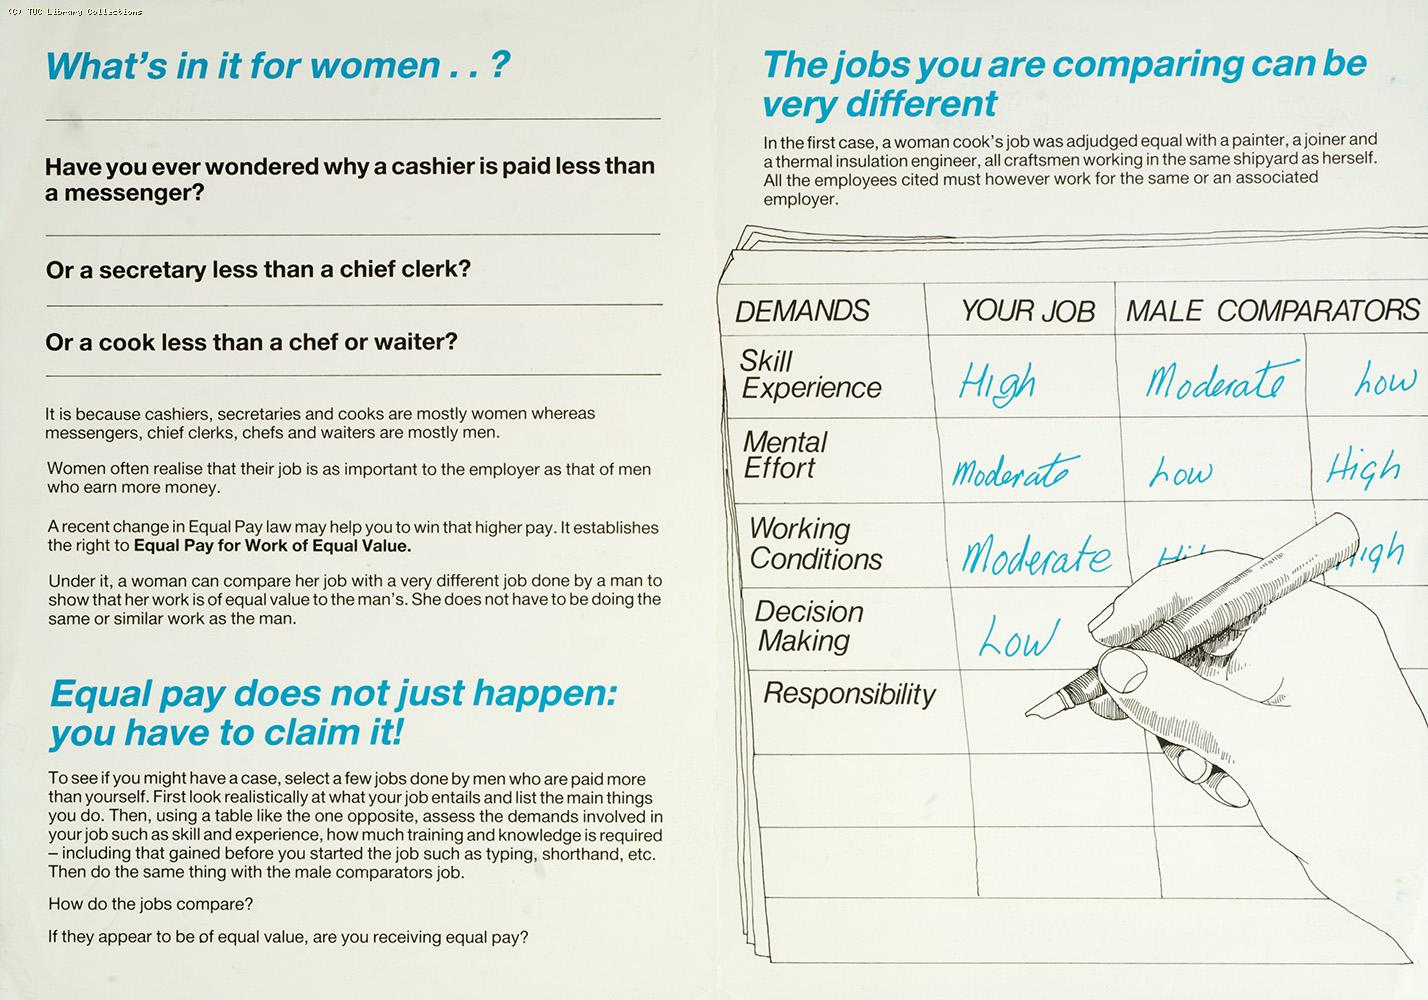 (C) TUC Library Collections
What's in it for women . . ?
Have you ever wondered why a cashier is paid less than
a messenger?
Or a secretary less than a chief clerk?
Or a cook less than a chef or waiter?
It is because cashiers, secretaries and cooks are mostly women whereas
messengers, chief clerks, chefs and waiters are mostly men.
Women often realise that their job is as important to the employer as that of men
who earn more money.
A recent change in Equal Pay law may help you to win that higher pay. It establishes
the right to Equal Pay for Work of Equal Value.
Under it, a woman can compare her job with a very different job done by a man to
show that her work is of equal value to the man's. She does not have to be doing the
same or similar work as the man.
Equal pay does not just happen:
you have to claim it!
To see if you might have a case, select a few jobs done by men who are paid more
than yourself. First look realistically at what your job entails and list the main things
you do. Then, using a table like the one opposite, assess the demands involved in
your job such as skill and experience, how much training and knowledge is required
– including that gained before you started the job such as typing, shorthand, etc.
Then do the same thing with the male comparators job.
How do the jobs compare?
If they appear to be of equal value, are you receiving equal pay?
The jobs you are comparing can be
very different
In the first case, a woman cook's job was adjudged equal with a painter, a joiner and
a thermal insulation engineer, all craftsmen working in the same shipyard as herself.
All the employees cited must however work for the same or an associated
employer.
DEMANDS YOUR JOB MALE COMPARATORS
Skill
Experience High Moderate Low
Mental
Effort Moderate Low High
Working
Conditions Moderate
Decision
Making Low
Responsibility